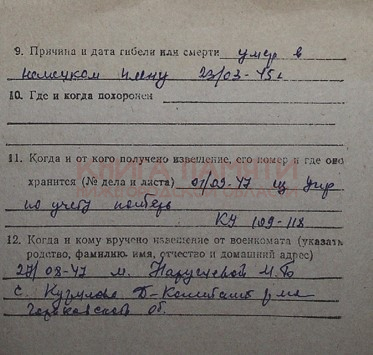 9. Причина и дата гибели или смерти умер в
немецком плену 23/03-45г
10. Где и когда похоронен
КНИГА ПАМЯТИ
НИЖЕГОРОДСКОЙ ОБЛАСТИ
11. Когда и от кого получено извещение, его номер и где оно
хранится (№ дела и листа) 01/09-47 из упр
по учету потерь
КУ 109-118
12. Когда и кому вручено извещение от военкомата (указать
родство, фамилию, имя, отчество и домашний адрес)
27/08-47 М.
с. Б-
Горьковской об.